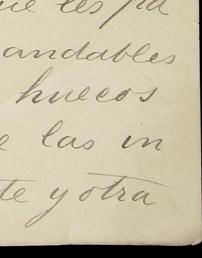 ue les pa
andables
huecos
e las in
te y otra